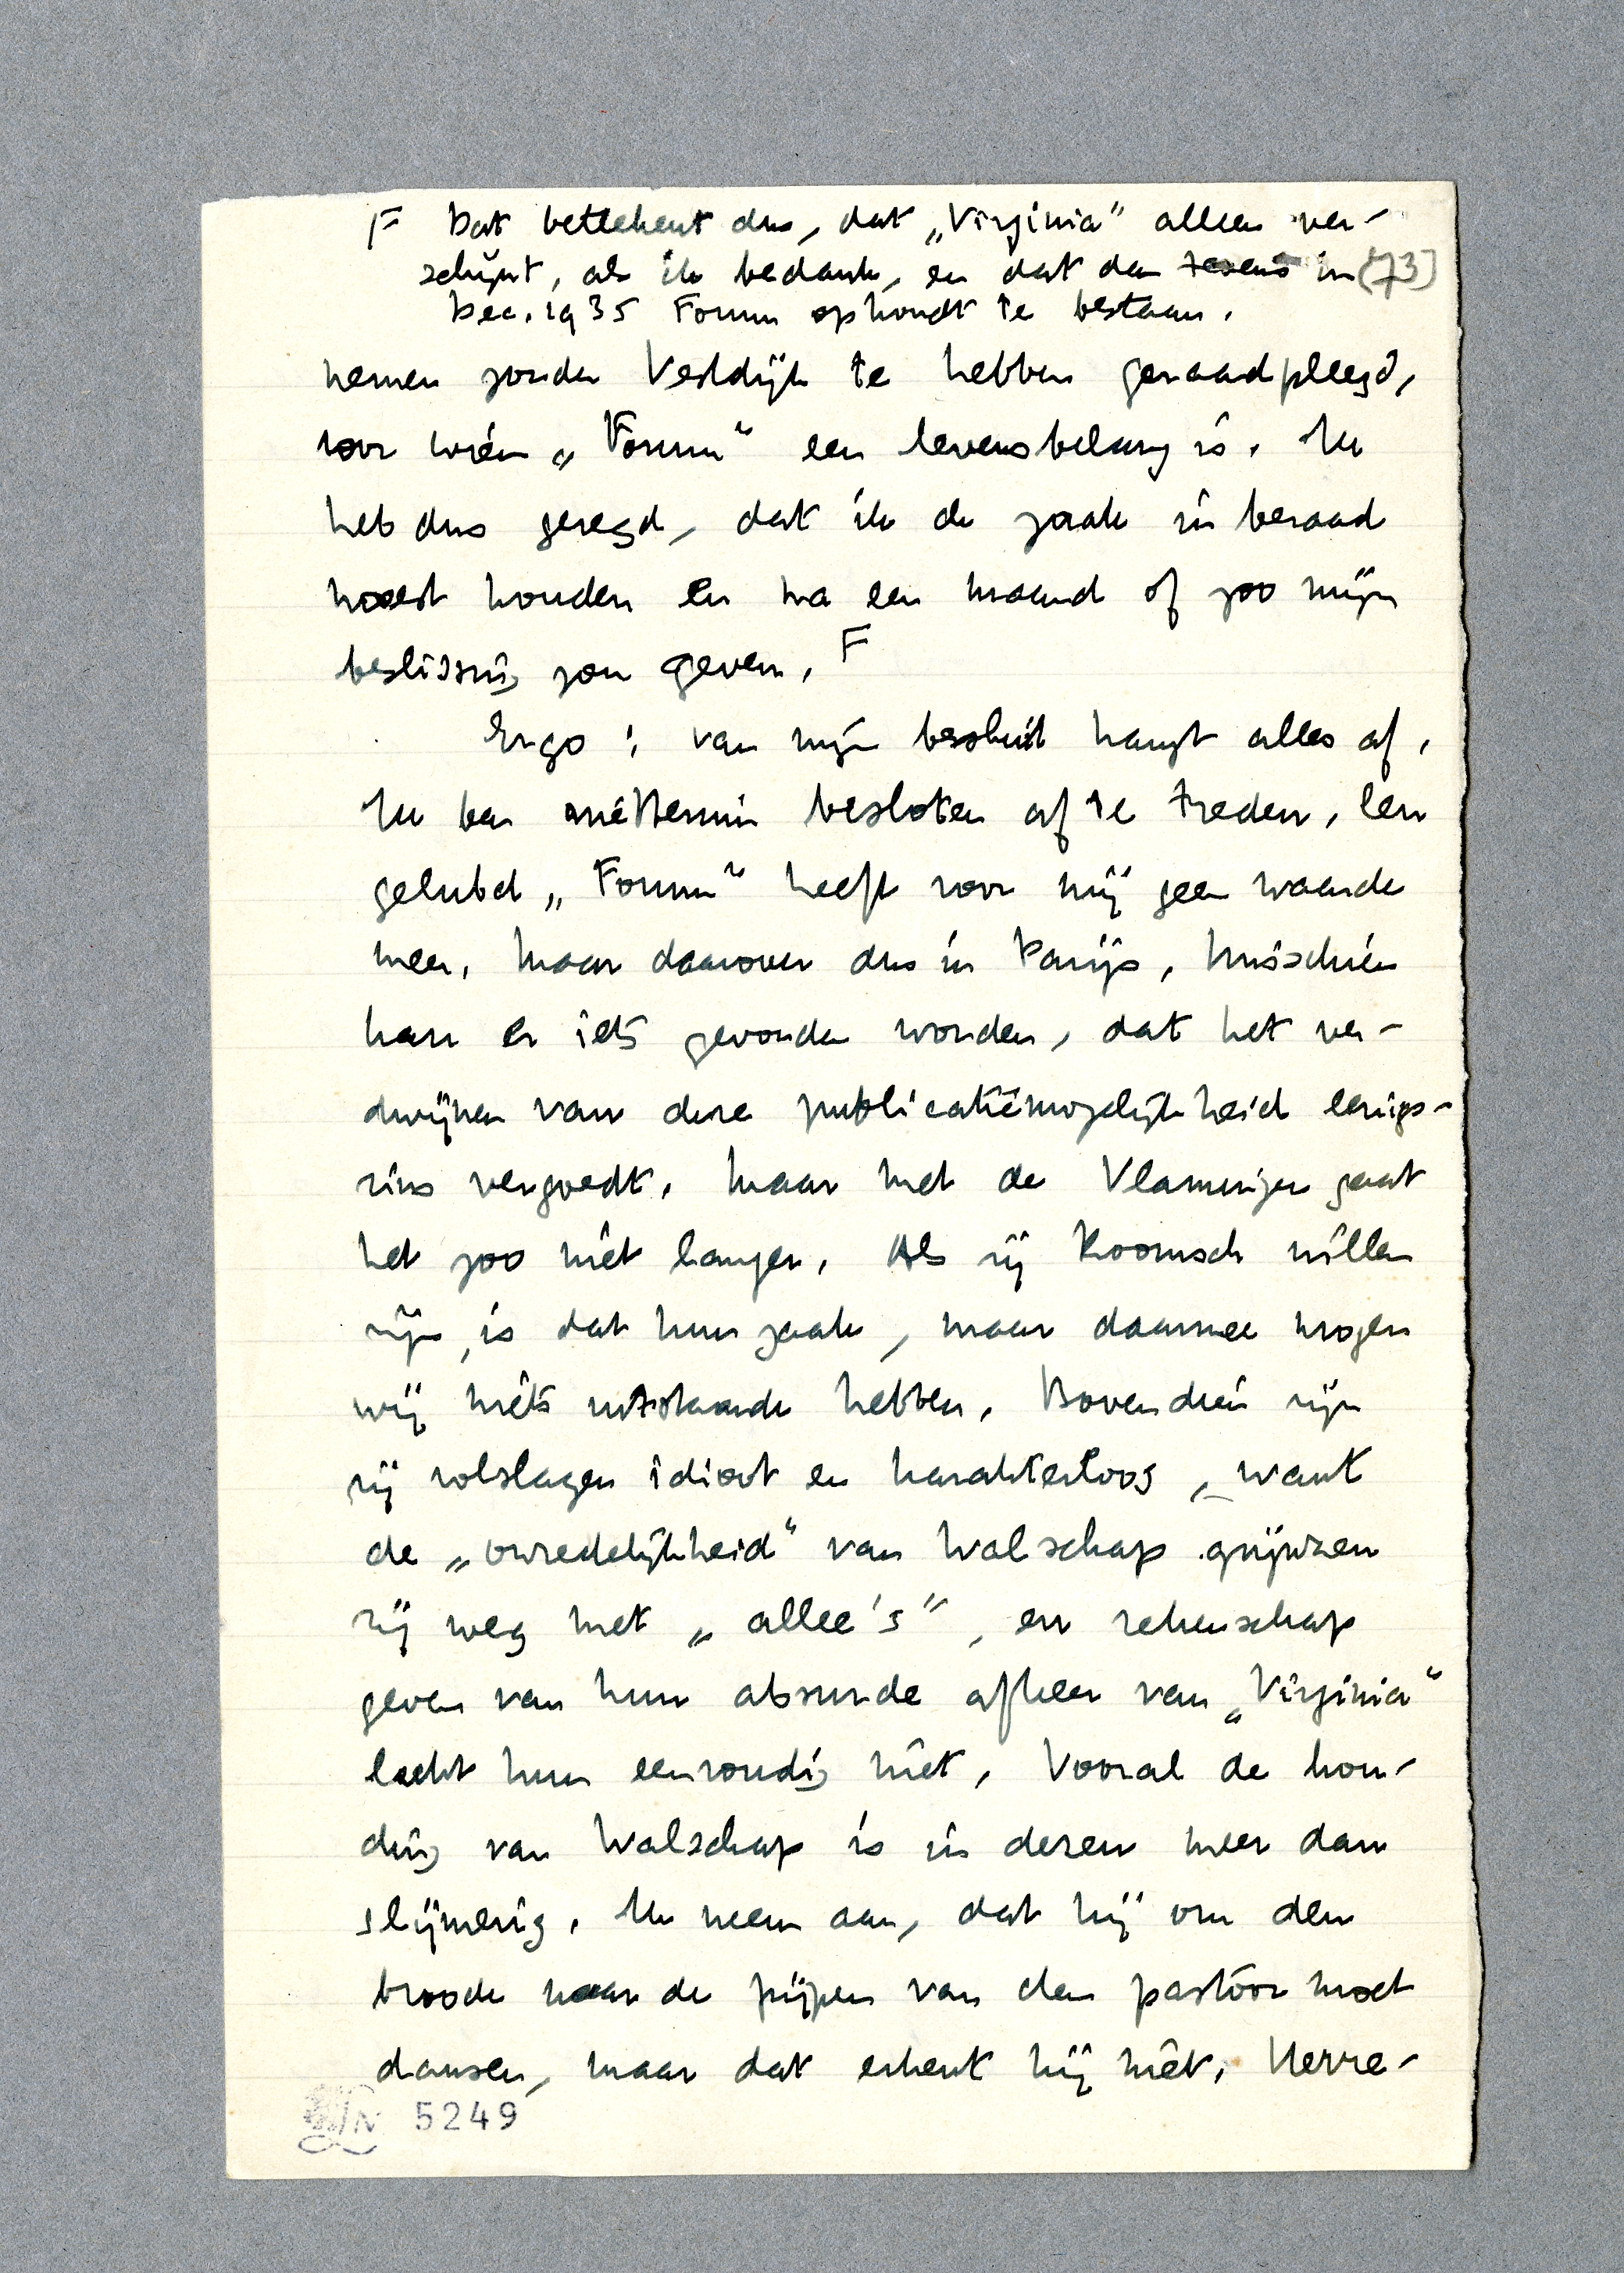 F Dat beteekent dus, dat „Virginia" alleen ver-
schijnt, als ik bedank, en dat dan tevens in (73)
Dec. 1935 Forum ophoudt te bestaan.
nemen zonder Vestdijk te hebben geraadpleegd,
voor wien „Forum" een levensbelang is. Ik
heb dus gezegd, dat ik de zaak in beraad
moest houden en na een maand of zoo mijn
beslissing zou geven. F
Ergo: van mijn besluit hangt alles af.
Ik ben niettemin besloten af te treden, een
gelubd „Forum" heeft voor mij geen waarde
meer. Maar daarover dus in Parijs. Misschien
kan er iets gevonden worden, dat het ver-
dwijnen van deze publicatiemogelijkheid eenigs-
zins vergoedt. Maar met de Vlamingen gaat
het zoo niet langer. Als zij Roomsch willen
zijn, is dat hun zaak, maar daarmee mogen
wij niets uitstaande hebben. Bovendien zijn
zij volslagen idioot en karakterloos, want
de „onredelijkheid" van Walschap grijnzen
zij weg met „allee's", en rekenschap
geven van hun absurde afkeer van „Virginia"
lukt hun eenvoudig niet. Vooral de hou-
ding van Walschap is in dezen meer dan
slijmerig. Ik neem aan, dat hij om den
broode naar de pijpen van den pastoor moet
dansen, maar dat erkent hij niet. Herre-
5249